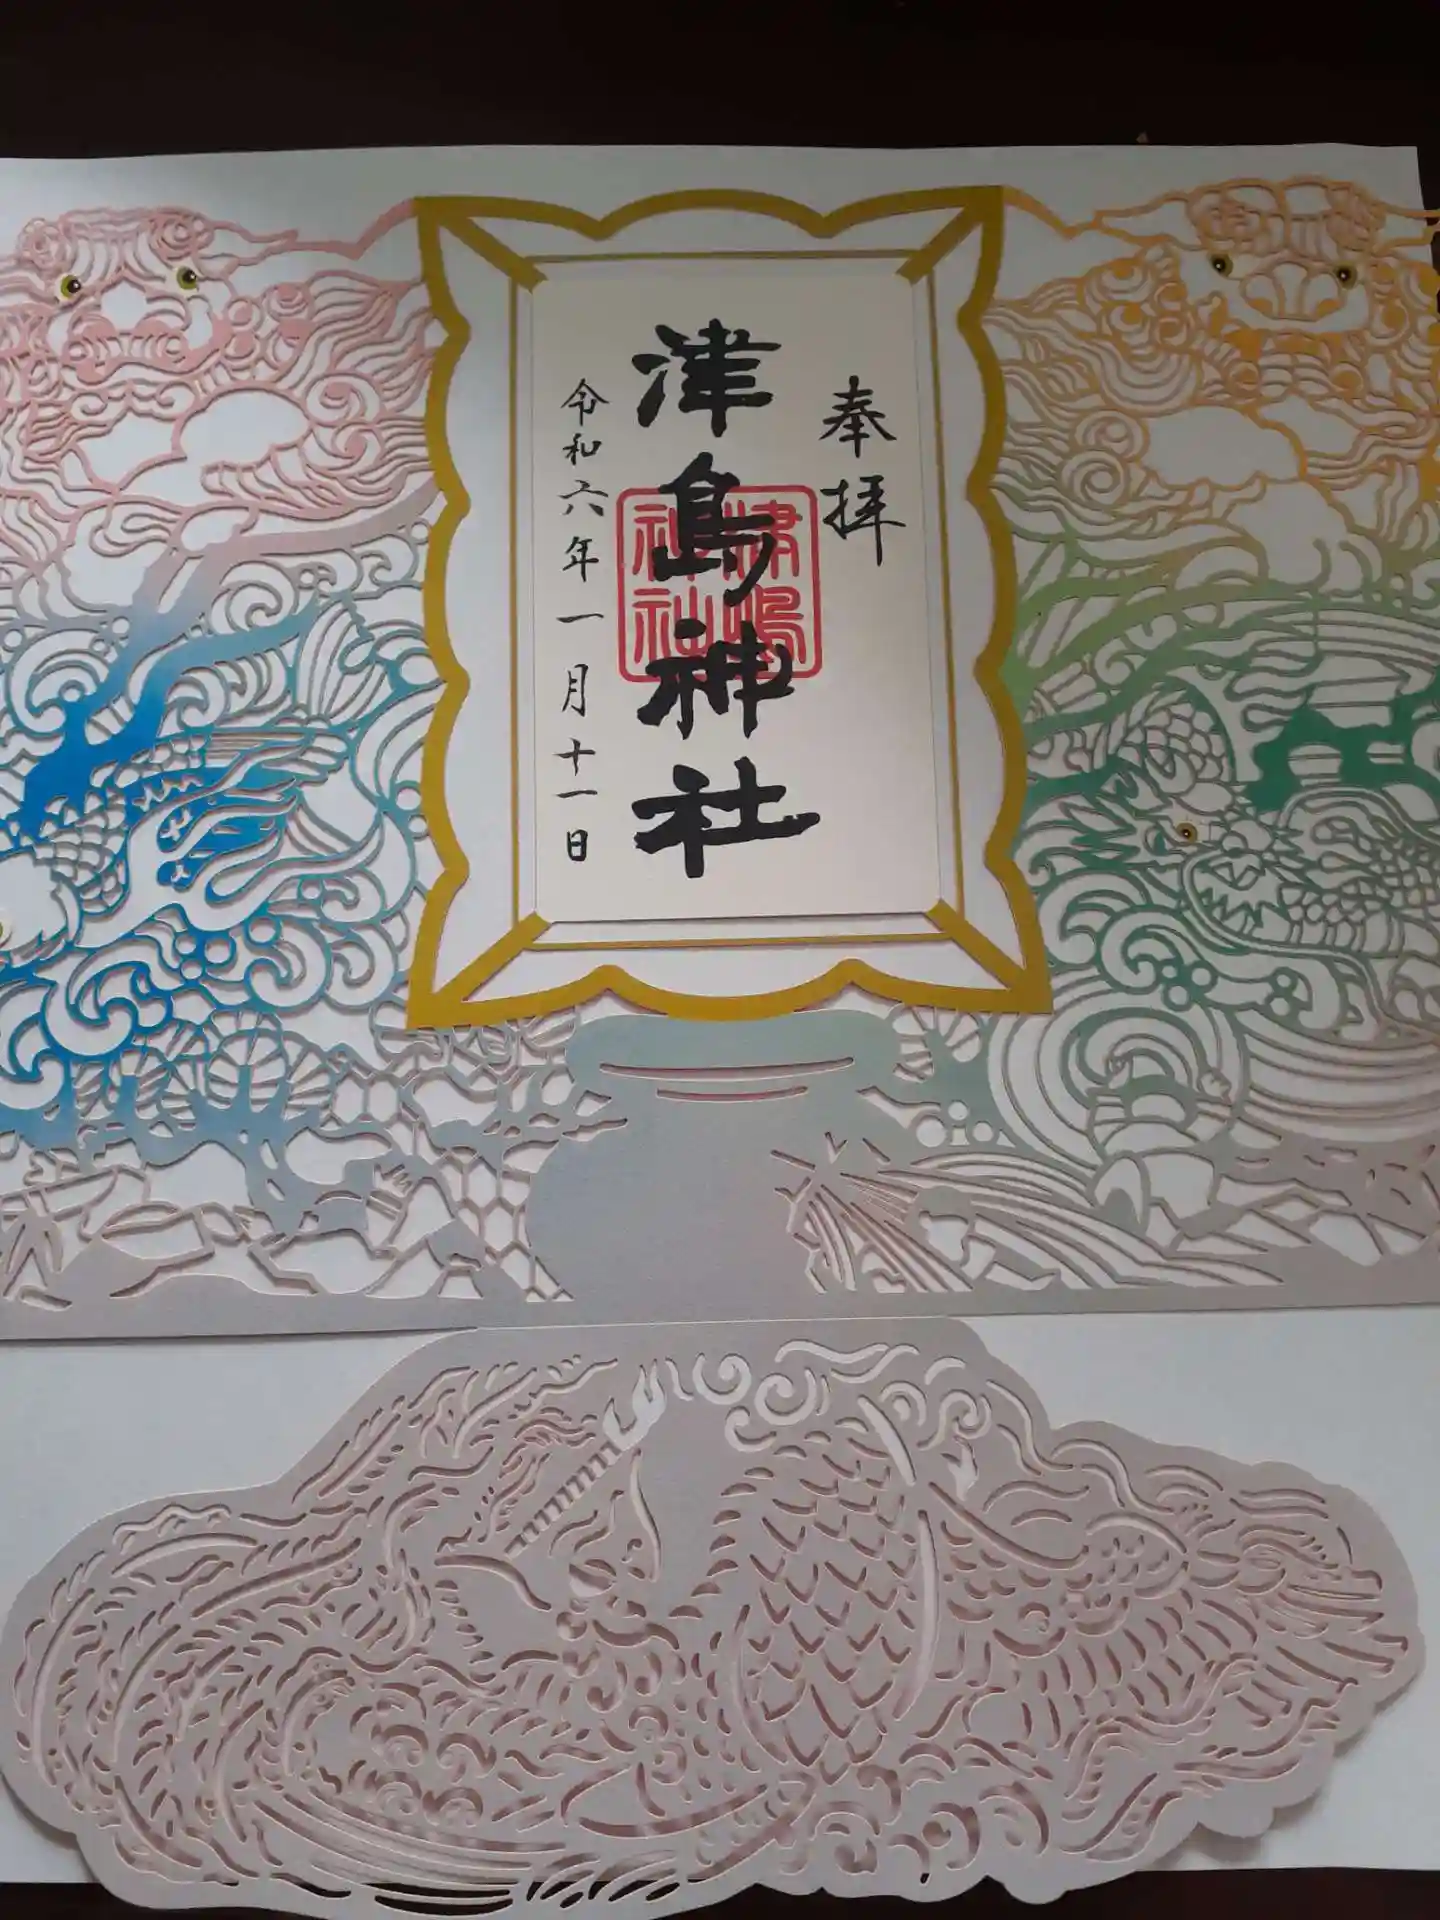 奉拝
津島神社
津嶋
神社
令和六年一月十一日